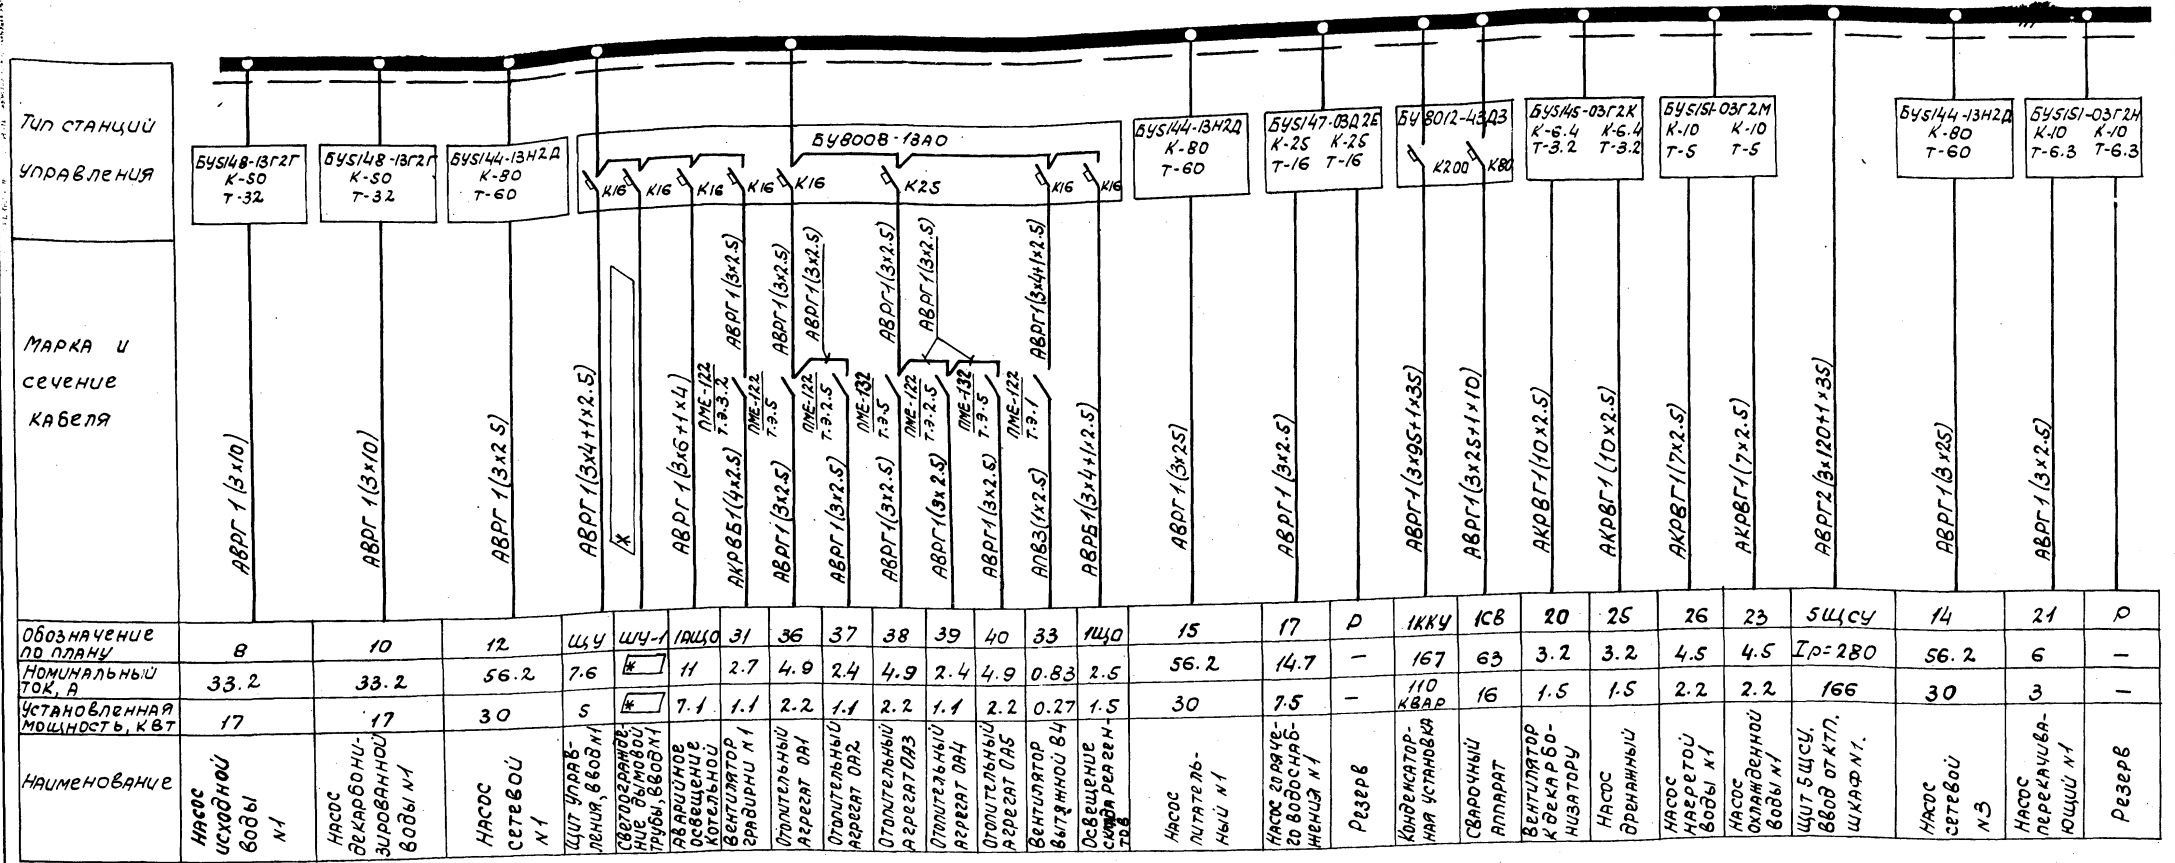 Тип станций
управления
БУ5148-13Г2Г
К-50
Т-32
БУ5148-13Г2Г
К-50
Т-32
БУ5144-13Н2Д
К-80
Т-60
БУ8008-13А0
К16
К16
К16
К16
К16
К25
К16
К16
БУ5144-13Н2Д
К-80
Т-60
БУ5147-03Д2Е
К-25 К-25
Т-16 Т-16
БУ8012-43Д3
К200
К80
БУ5145-03Г2К
К-6.4 К-6.4
Т-3.2 Т-3.2
БУ5151-03Г2М
К-10 К-10
Т-5 Т-5
БУ5144-13Н2Д
К-80
Т-60
БУ5151-03Г2Н
К-10 К-10
Т-6.3 Т-6.3
Марка и
сечение
кабеля
АВРГ 1(3х10)
АВРГ 1(3х10)
АВРГ 1(3х25)
АВРГ1(3х4+1х2.5)
*
АВРГ1(3х6+1х4)
АВРГ1(3х2.5)
ПМЕ-122
Т.Э.3.2
АКРВБ1(4х2.5)
АВРГ1(3х2.5)
ПМЕ-122
Т.Э.5
АВРГ1(3х2.5)
АВРГ1(3х2.5)
ПМЕ-122
Т.Э.2.5
АВРГ1(3х2.5)
АВРГ1(3х2.5)
ПМЕ-132
Т.Э.5
АВРГ1(3х2.5)
АВРГ1(3х2.5)
ПМЕ-122
Т.Э.2.5
АВРГ1(3х2.5)
ПМЕ-132
Т.Э.5
АВРГ1(3х2.5)
АВРГ1(3х4+1х2.5)
ПМЕ-122
Т.Э.1
АПВ3(1х2.5)
АВРБ1(3х4+1х2.5)
АВРГ1(3х25)
АВРГ1(3х2.5)
АВРГ1(3х95+1х35)
АВРГ1(3х25+1х10)
АКРВГ1(10х2.5)
АКРВГ1(10х2.5)
АКРВГ1(7х2.5)
АКРВГ1(7х2.5)
АВРГ2(3х120+1х35)
АВРГ1(3х25)
АВРГ1(3х2.5)
Обозначение
по плану
8 10 12 ЩУ ШУ-1 1АЩО 31 36 37 38 39 40 33 1ЩО 15 17 Р 1ККУ 1СВ 20 25 26 23 5ЩСУ 14 21 Р
Номинальный
ток, А
33.2 33.2 56.2 7.6 * 11 2.7 4.9 2.4 4.9 2.4 4.9 0.83 2.5 56.2 14.7 — 167 63 3.2 3.2 4.5 4.5 Iр=280 56.2 6 —
Установленная
мощность, кВт
17 17 30 5 * 7.1 1.1 2.2 1.1 2.2 1.1 2.2 0.27 1.5 30 7.5 — 110 квар 16 1.5 1.5 2.2 2.2 166 30 3 —
Наименование
Насос
исходной
воды
N1
Насос
декарбони-
зированной
воды N1
Насос
сетевой
N1
Щит управ-
ления, ввод N1
Светоогражде-
ние дымовой
трубы, ввод N1
Аварийное
освещение
котельной
Вентилятор
градирни N1
Отопительный
агрегат ОА1
Отопительный
агрегат ОА2
Отопительный
агрегат ОА3
Отопительный
агрегат ОА4
Отопительный
агрегат ОА5
Вентилятор
вытяжной В4
Освещение
склада реаген-
тов
Насос
питатель-
ный N1
Насос горяче-
го водоснаб-
жения N1
Резерв
Конденсатор-
ная установка
Сварочный
аппарат
Вентилятор
к декарбо-
низатору
Насос
дренажный
Насос
нагретой
воды N1
Насос
охлажденной
воды N1
Щит 5ЩСУ,
ввод от КТП,
шкаф N1.
Насос
сетевой
N3
Насос
перекачива-
ющий N1
Резерв